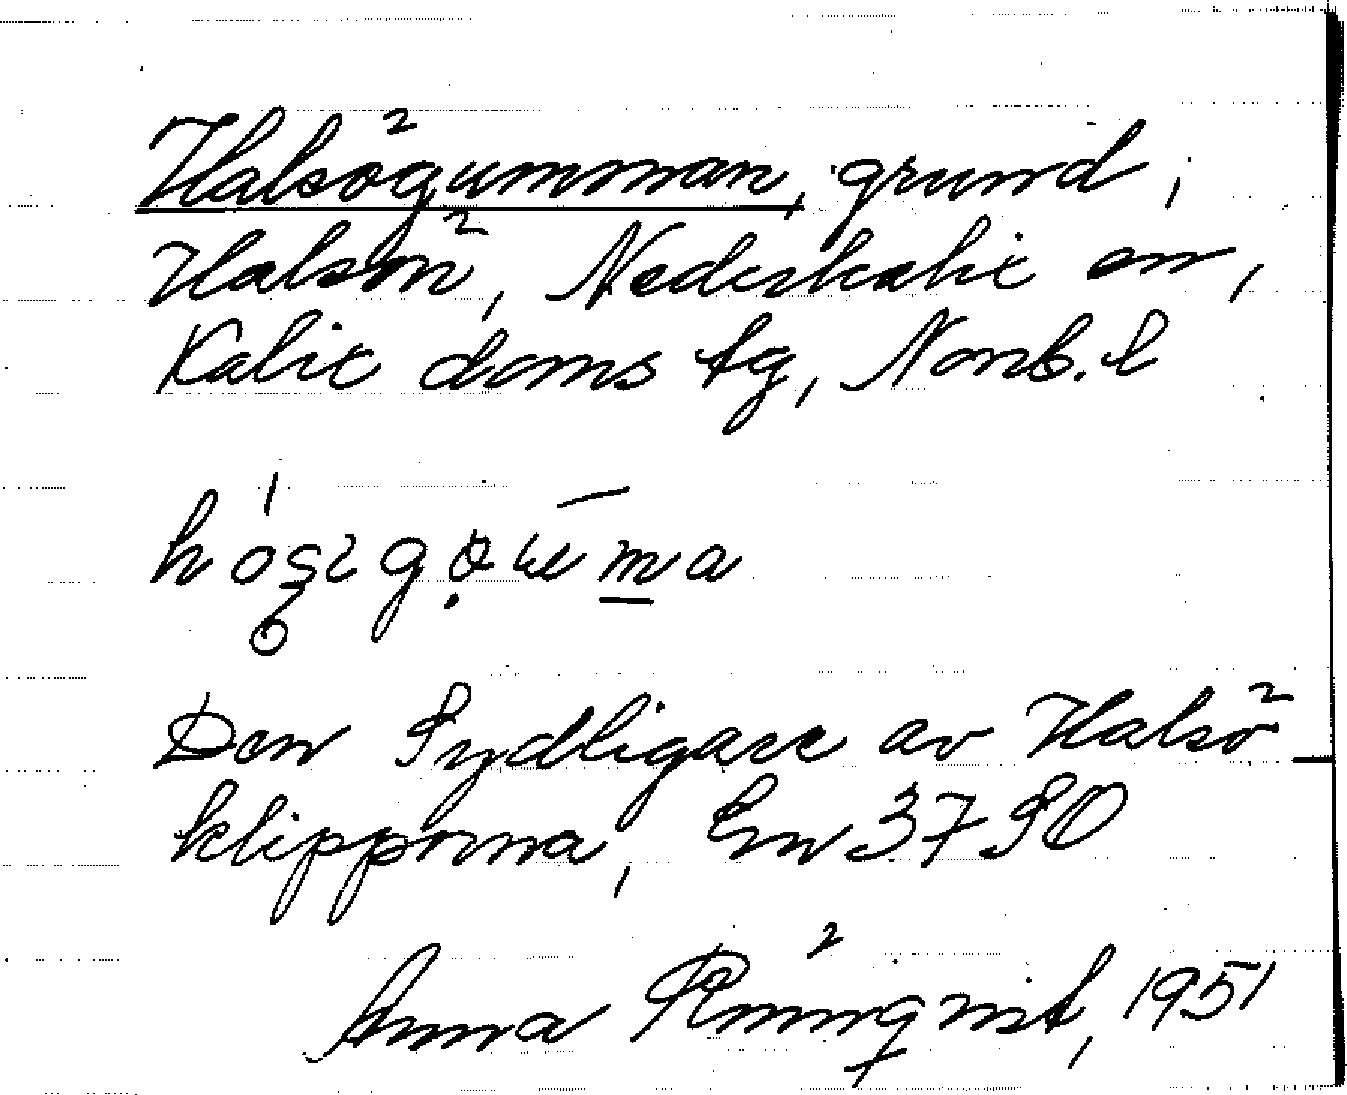 Halsögumman, grund,
Halsön, Nederkalix sn,
Kalix doms tg, Norrb. l
Den Sydligare av Halsö-
klipporna, Em 3790
Anna Rönnqvist, 1951